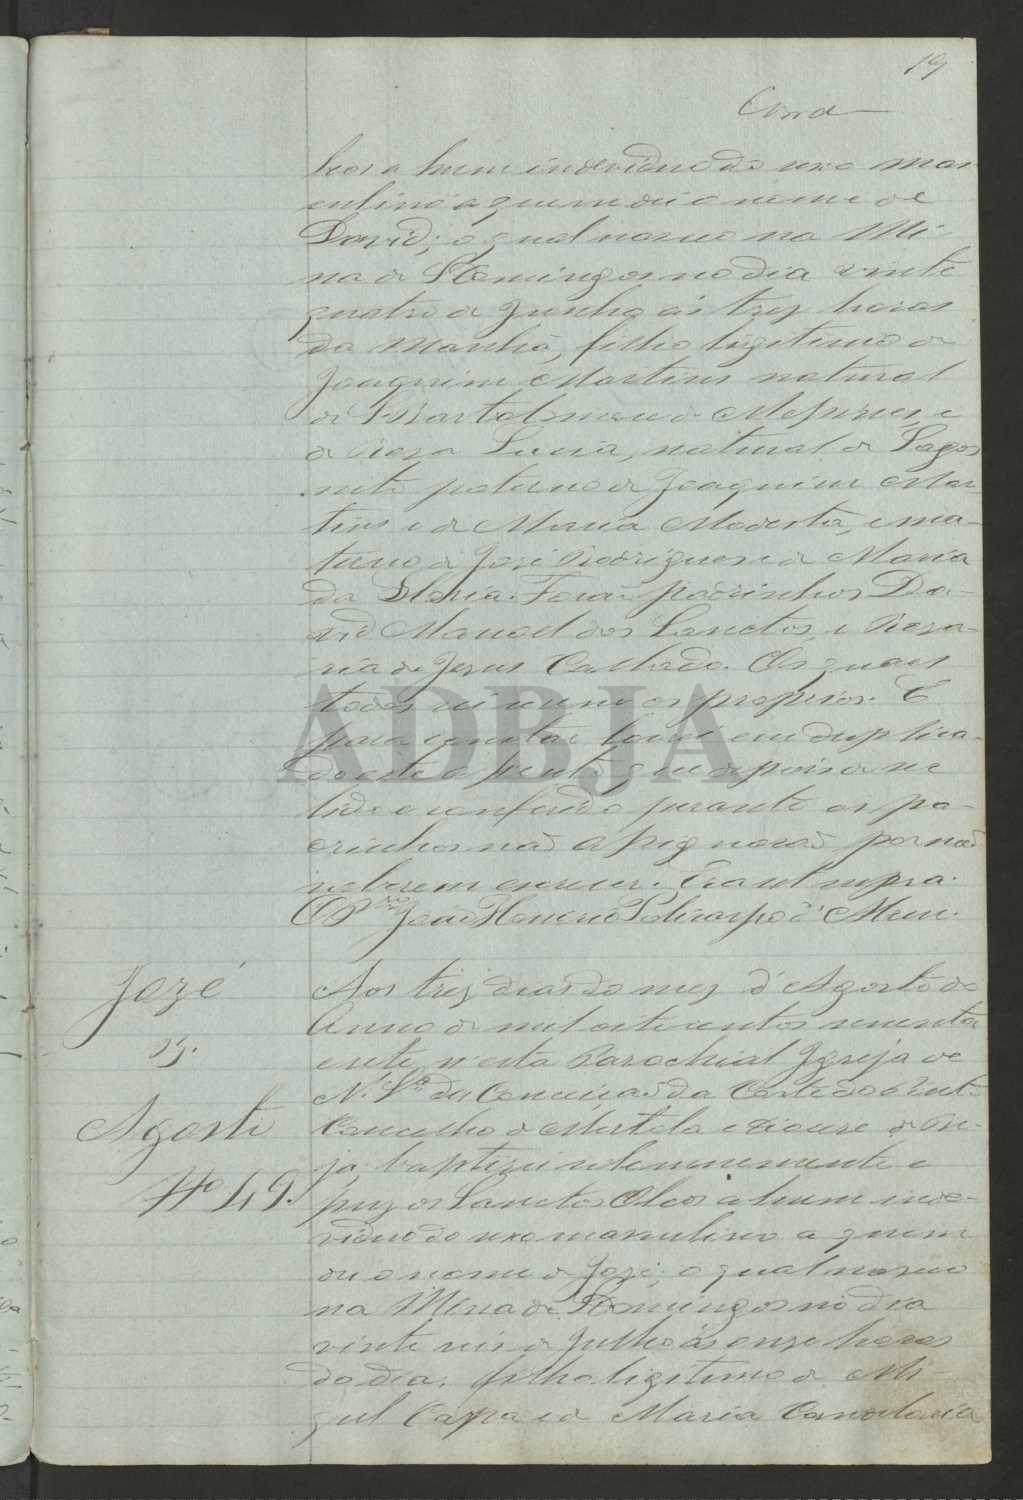 19
Cond
leos a hum individuo do sexo mas
culino a quem dei o nome de
David; o qual nasceo na Mi-
na de S. Domingos no dia vinte
quatro de Junho ás trez horas
da Manhã, filho legitimo de
Joaquim Martins natural
de S. Bartolomeu de Messines, e
de Roza Lucia, natural de Lagos
neto paterno de Joaquim Mar-
tins e de Maria Modesta, e ma-
terno de José Rodrigues e de Maria
da Gloria. Forão padrinhos Da-
vid Manoel dos Sanctos, e Roza-
ria de Jezus Calhada. Os quaes
todos sei serem os proprios. E
para constar lavrei em duplica-
do este assento que depois de ser
lido e conferido perante os pa-
drinhos não assignarão por não
saberem escrever. Era ut supra.
O P. João Honorio Policarpo d'
José
3.
Agosto
Nº 49.
Aos trez dias do mez d'Agosto do
Anno de mil oito centos secenta
e sete n'esta Parochial Igreja de
N. Sra. da Conceição da Corte do Pinto
Concelho de Mertola e Diocese de Be-
ja, baptizei solemnemente e
puz os Sanctos Oleos a hum indi-
viduo do sexo masculino a quem
dei o nome de José, o qual nasceo
na Mina de S. Domingos no dia
vinte seis de Julho ás onze horas
do dia. filho legitimo de Mi-
guel Capa e de Maria Candelaria
ADBJA